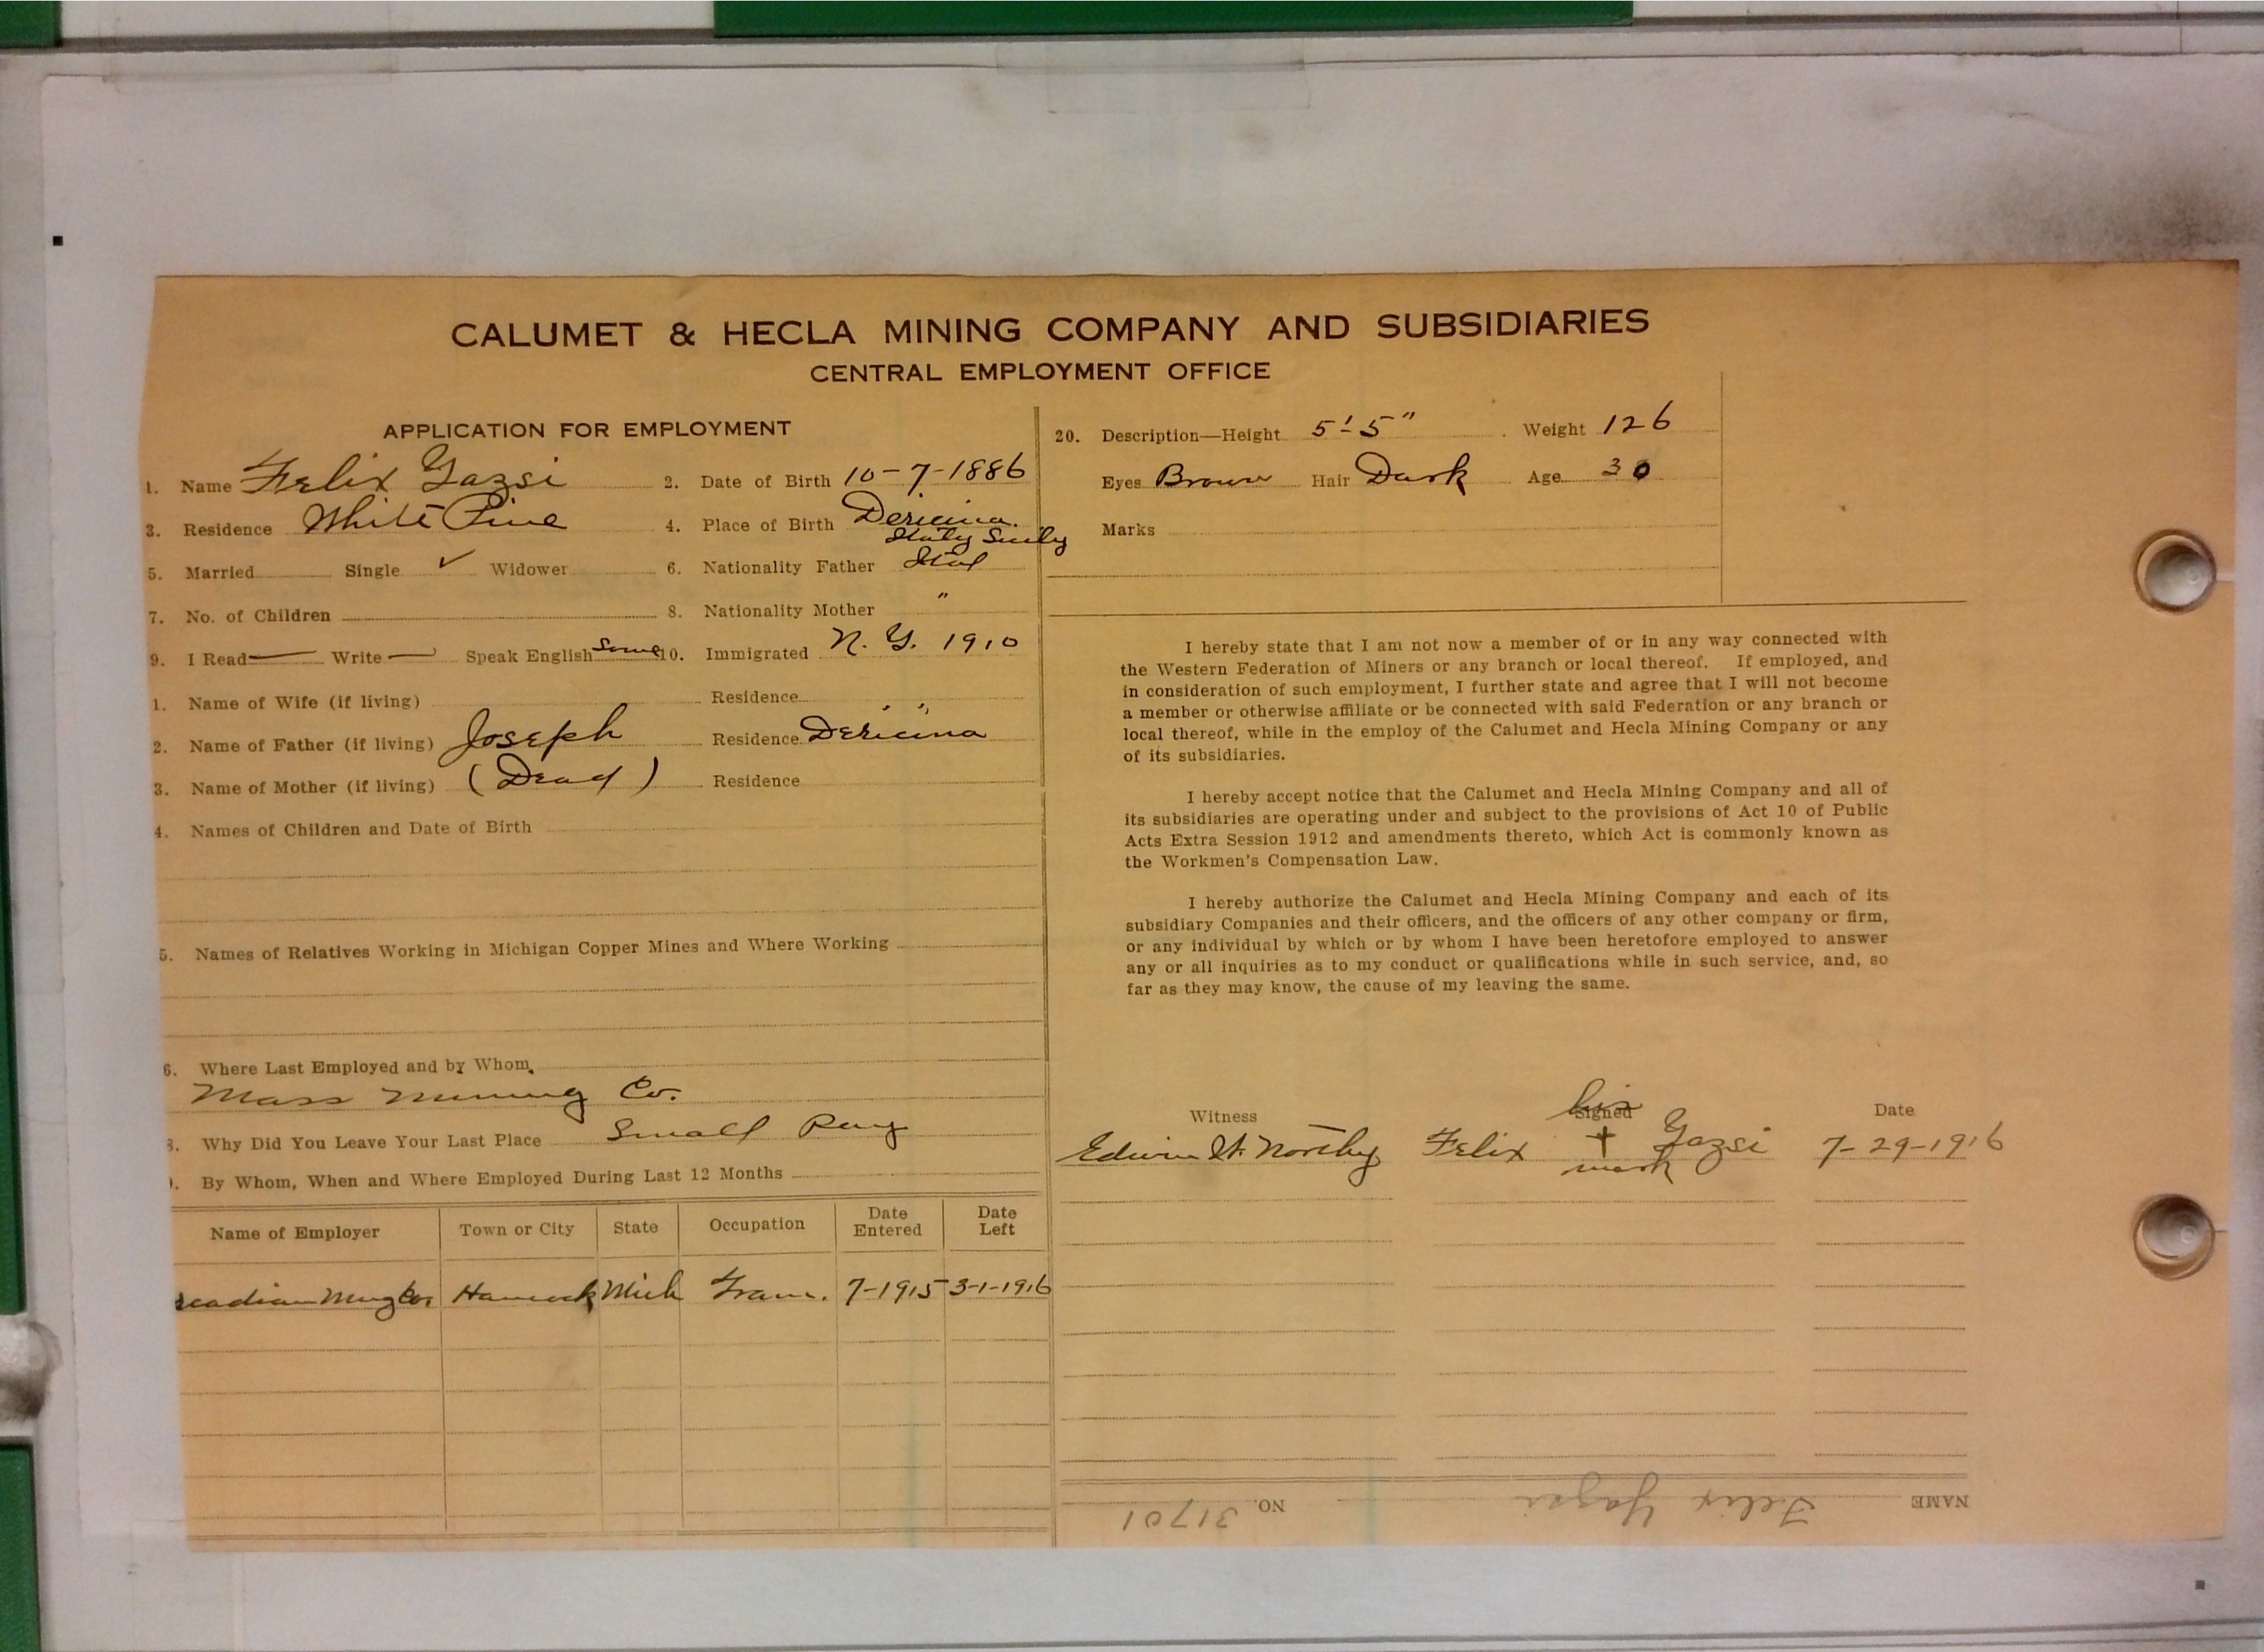 CALUMET & HECLA MINING COMPANY AND SUBSIDIARIES
CENTRAL EMPLOYMENT OFFICE
APPLICATION FOR EMPLOYMENT
1. Name Felix Gazsi 2. Date of Birth 10-7-1886
3. Residence White Pine 4. Place of Birth
Italy Sicily
5. Married Single ✓ Widower 6. Nationality Father Ital
7. No. of Children 8. Nationality Mother "
9. I Read — Write — Speak English Some 10. Immigrated N. Y. 1910
1. Name of Wife (if living) Residence
2. Name of Father (if living) Joseph Residence
3. Name of Mother (if living) (Dead) Residence
4. Names of Children and Date of Birth
5. Names of Relatives Working in Michigan Copper Mines and Where Working
6. Where Last Employed and by Whom
Mass Mining Co.
8. Why Did You Leave Your Last Place Small Pay
). By Whom, When and Where Employed During Last 12 Months
Name of Employer Town or City State Occupation Date Entered Date Left
rcadian Mng Co. Hancock Mich Tram. 7-1915 3-1-1916
20. Description—Height 5'5" Weight 126
Eyes Brown Hair Dark Age 30
Marks
I hereby state that I am not now a member of or in any way connected with
the Western Federation of Miners or any branch or local thereof. If employed, and
in consideration of such employment, I further state and agree that I will not become
a member or otherwise affiliate or be connected with said Federation or any branch or
local thereof, while in the employ of the Calumet and Hecla Mining Company or any
of its subsidiaries.
I hereby accept notice that the Calumet and Hecla Mining Company and all of
its subsidiaries are operating under and subject to the provisions of Act 10 of Public
Acts Extra Session 1912 and amendments thereto, which Act is commonly known as
the Workmen's Compensation Law.
I hereby authorize the Calumet and Hecla Mining Company and each of its
subsidiary Companies and their officers, and the officers of any other company or firm,
or any individual by which or by whom I have been heretofore employed to answer
any or all inquiries as to my conduct or qualifications while in such service, and, so
far as they may know, the cause of my leaving the same.
Witness Signed Date
his
Edwin Northey Felix + Gazsi 7-29-1916
mark
NAME Felix Gazsi NO. 31701